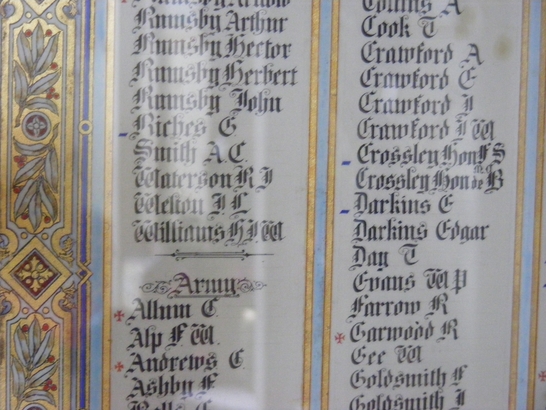 Rumsby Arthur
Rumsby Hector
Rumsby Herbert
Rumsby John
Riches G
Smith A.C.
Waterson R J
Welton J L
Williams H.J.W
Army
Allum C
Alp F W.
Andrews C.
Ashby F
Collins A
Cook T
Crawford A
Crawford E
Crawford J
Crawford J W
Crossley Hon F S
Crossley Hon de B
Darkins E
Darkins Edgar
Day T
Evans W P
Farrow R
Garwood R
Gee W
Goldsmith F
Goldsmith J